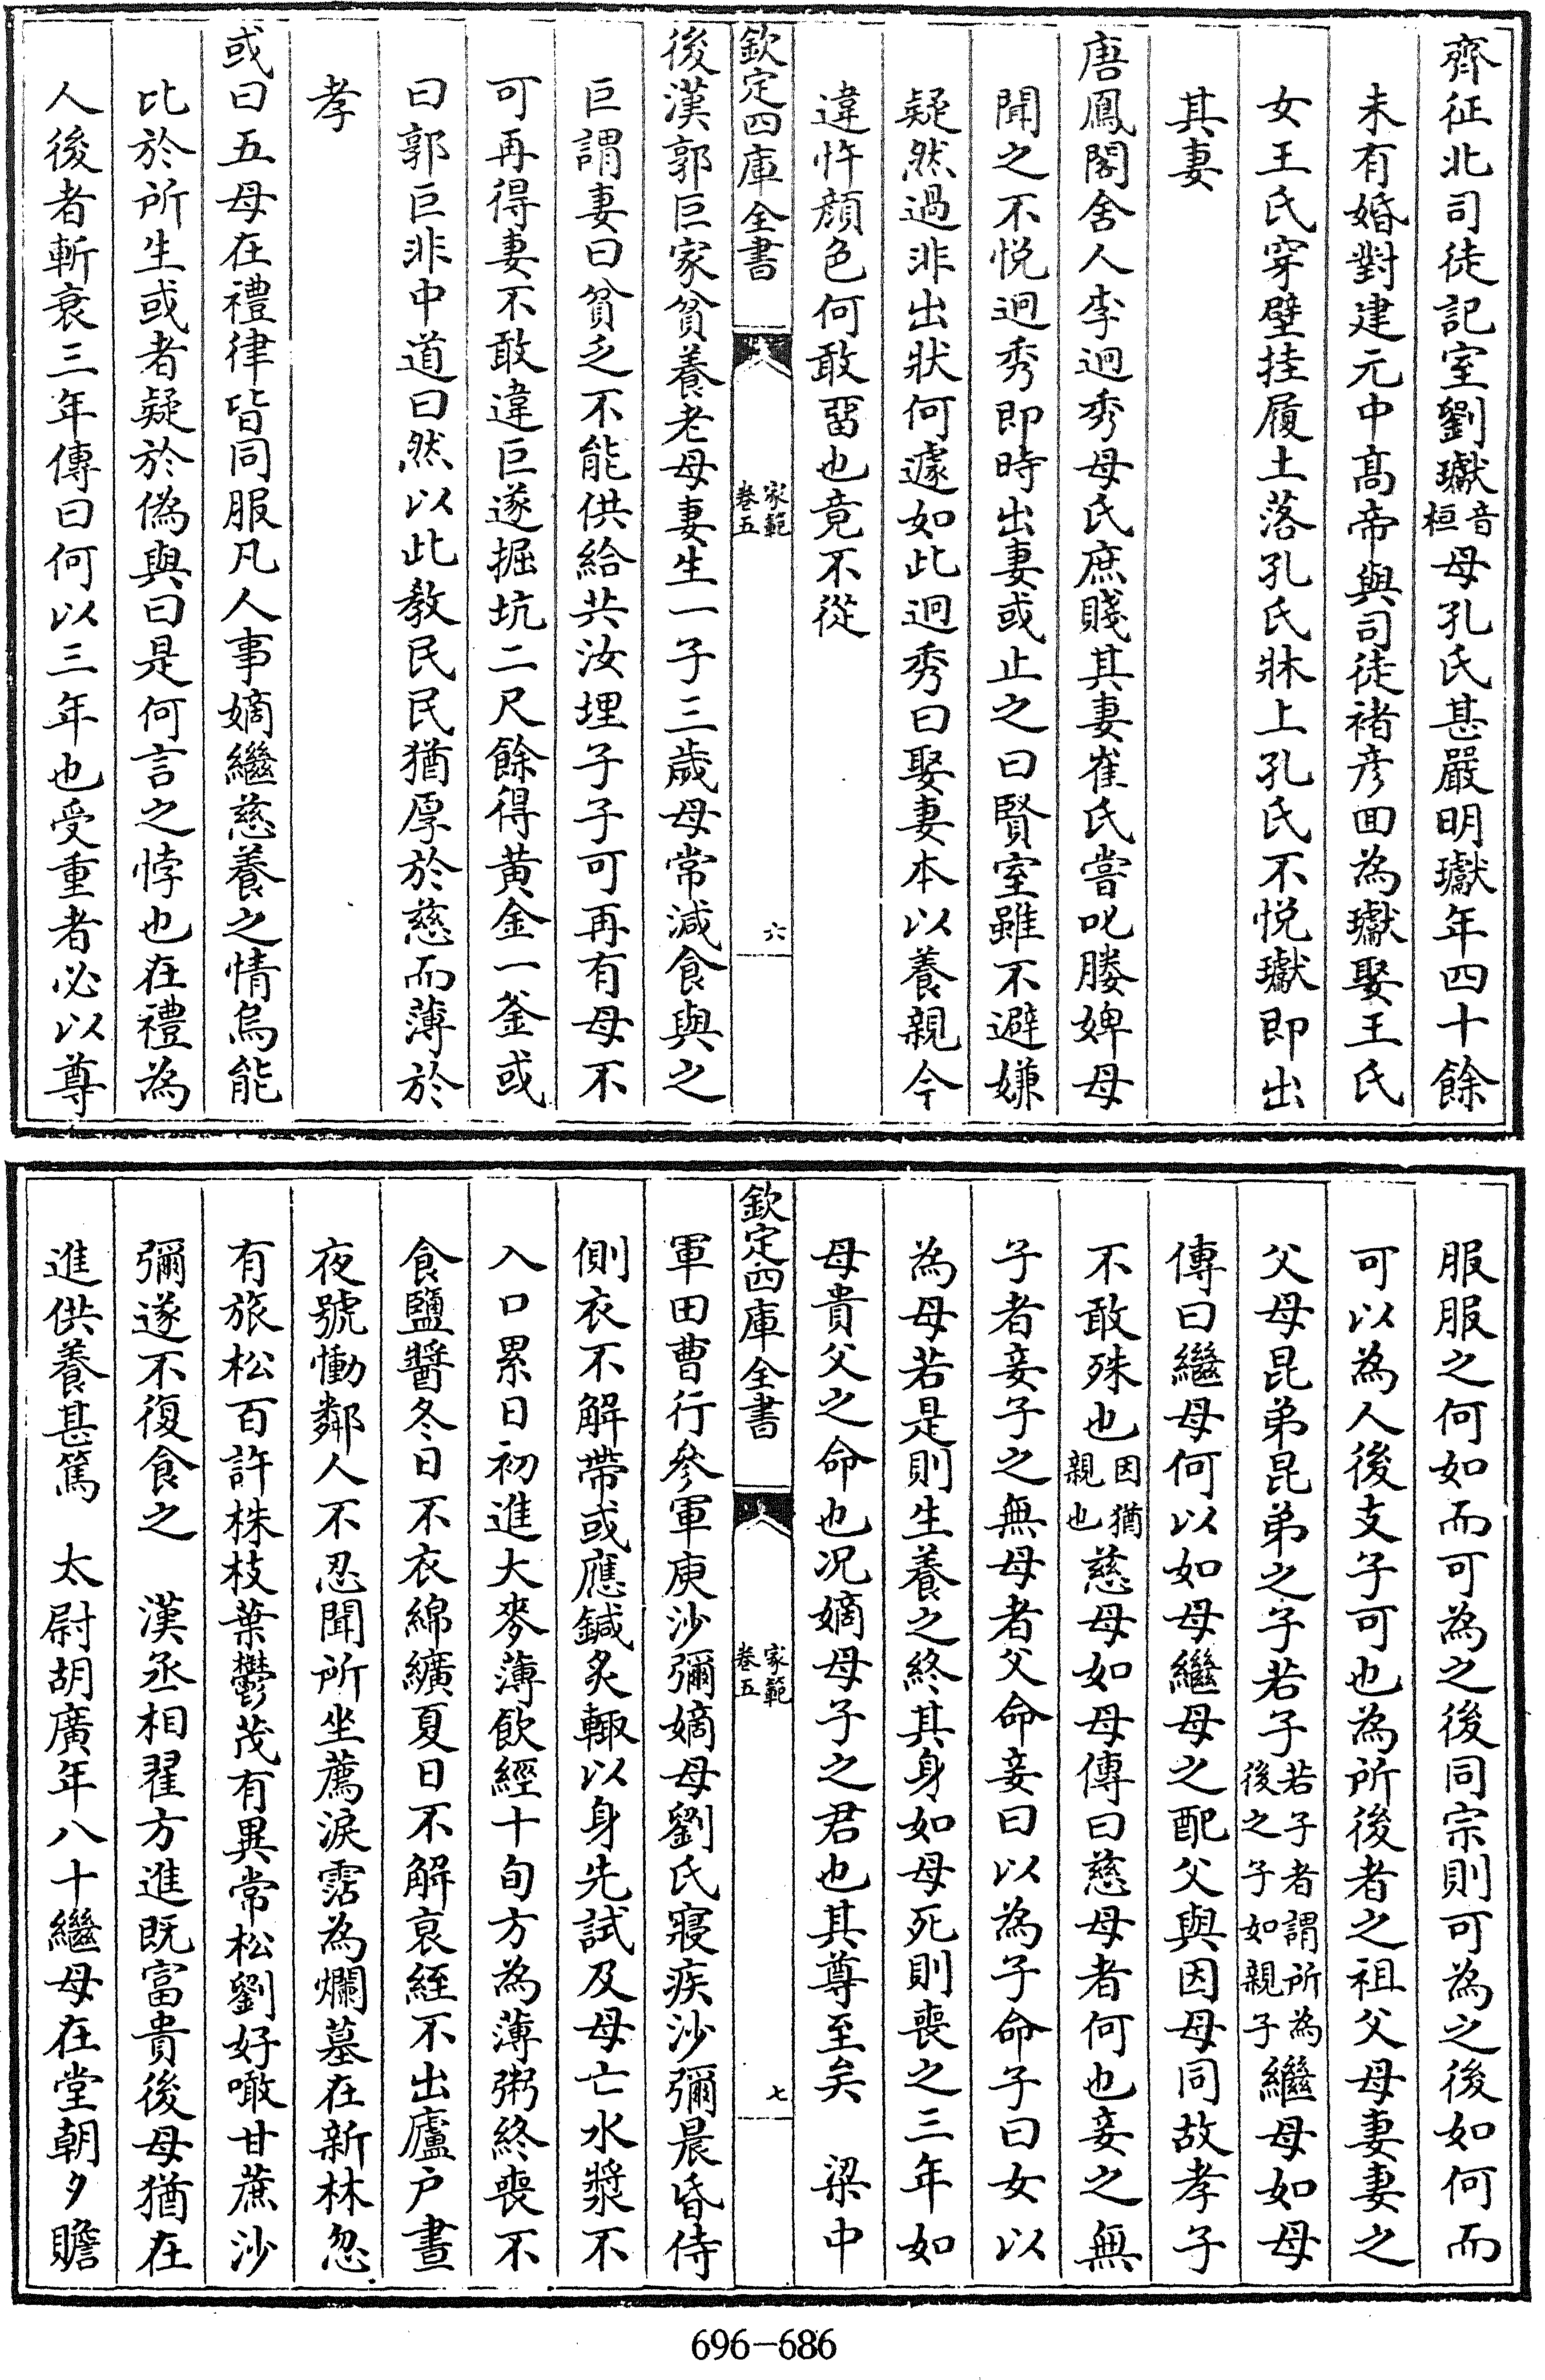 齊征北司徒記室劉瓛音桓母孔氏甚嚴明瓛年四十餘
未有婚對建元中髙帝與司徒褚彦回為瓛娶王氏
女王氏穿壁挂履土落孔氏牀上孔氏不悦瓛即出
其妻
唐鳳閣舍人李迥秀母氏庶賤其妻崔氏嘗叱媵婢母
聞之不悦迥秀即時出妻或止之曰賢室雖不避嫌
疑然過非出狀何遽如此迥秀曰娶妻本以養親今
違忤顔色何敢留也竟不從
欽定四庫全書
家範
卷五
六
後漢郭巨家貧養老母妻生一子三歲母常減食與之
巨謂妻曰貧乏不能供給共汝埋子子可再有母不
可再得妻不敢違巨遂掘坑二尺餘得黄金一釜或
曰郭巨非中道曰然以此教民民猶厚於慈而薄於
孝
或曰五母在禮律皆同服凡人事嫡繼慈養之情烏能
比於所生或者疑於偽與曰是何言之悖也在禮為
人後者斬衰三年傳曰何以三年也受重者必以尊
服服之何如而可為之後同宗則可為之後如何而
可以為人後支子可也為所後者之祖父母妻妻之
父母昆弟昆弟之子若子若子者謂所為後之子如親子繼母如母
傳曰繼母何以如母繼母之配父與因母同故孝子
不敢殊也因猶親也慈母如母傳曰慈母者何也妾之無
子者妾子之無母者父命妾曰以為子命子曰女以
為母若是則生養之終其身如母死則喪之三年如
母貴父之命也况嫡母子之君也其尊至矣　梁中
欽定四庫全書
家範
卷五
七
軍田曹行參軍庾沙彌嫡母劉氏寢疾沙彌晨昏侍
側衣不解帶或應鍼炙輙以身先試及母亡水漿不
入口累日初進大麥薄飲經十旬方為薄粥終喪不
食鹽醬冬日不衣綿纊夏日不解衰絰不出廬户晝
夜號慟鄰人不忍聞所坐薦淚霑為爛墓在新林忽
有旅松百許株枝葉鬱茂有異常松劉好噉甘蔗沙
彌遂不復食之　漢丞相翟方進既富貴後母猶在
進供養甚篤　太尉胡廣年八十繼母在堂朝夕瞻
696-686